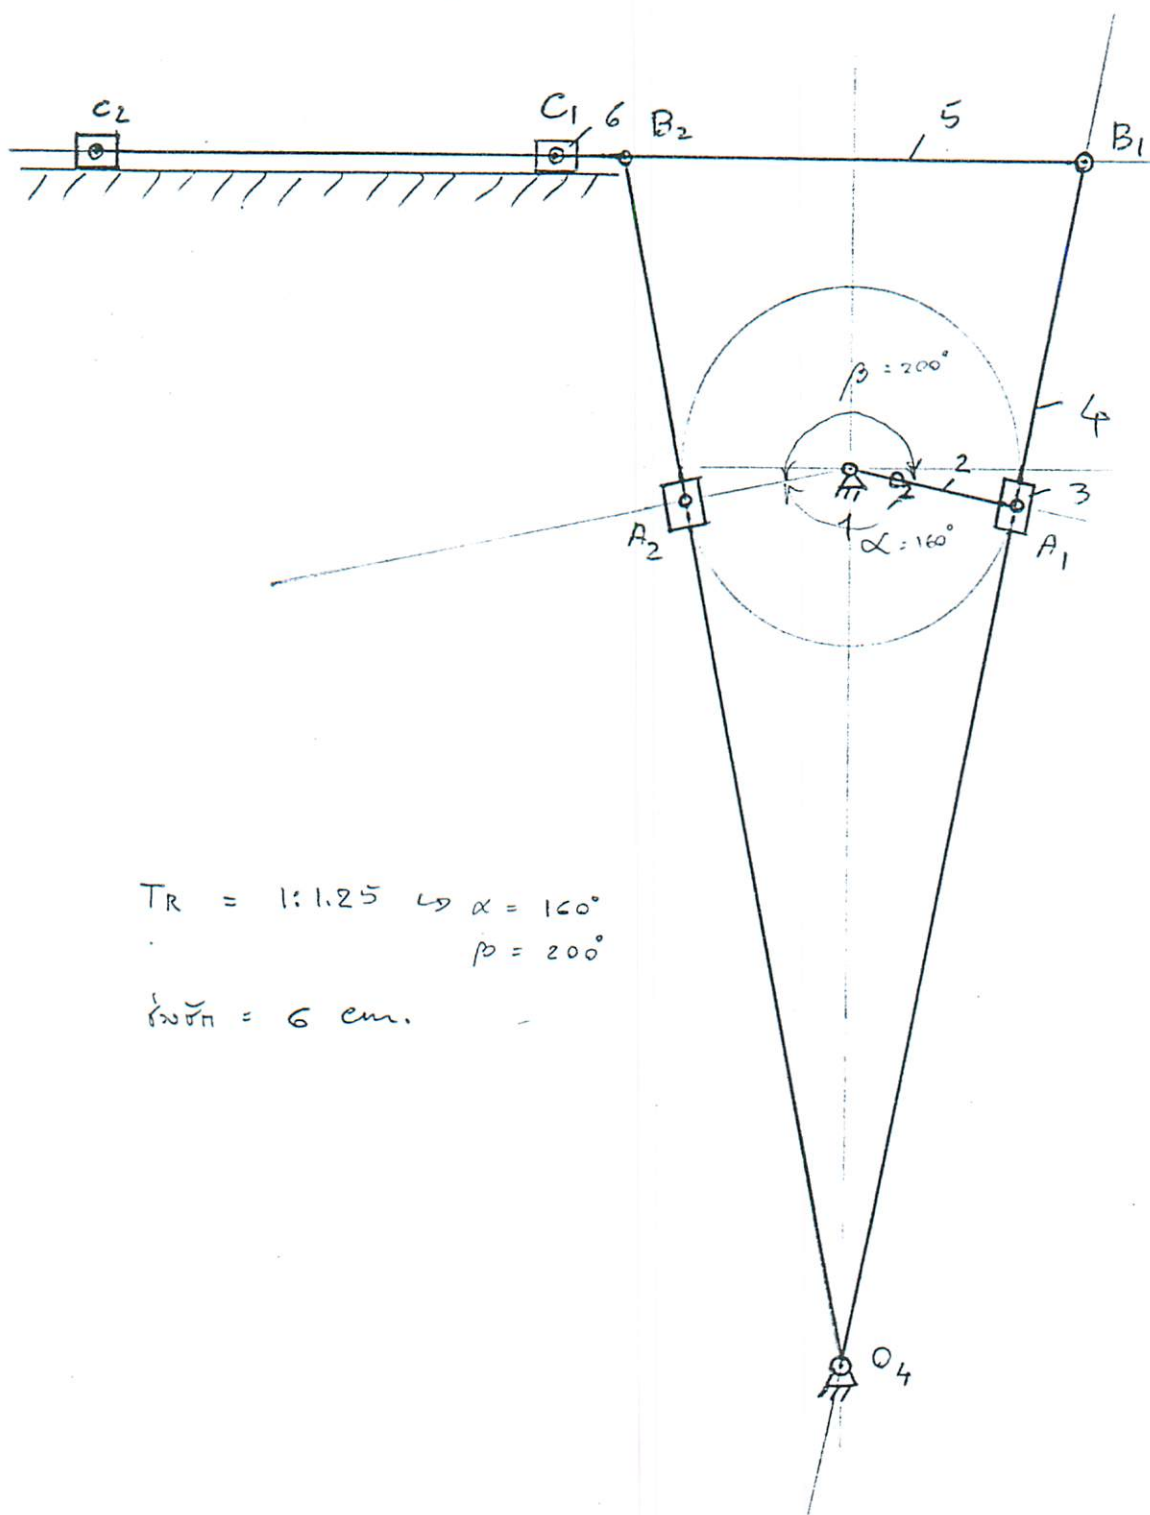 C₂
C₁ 6 B₂ 5 B₁
β = 200°
4
2 3
O₂
A₂ 1 α = 160° A₁
TR = 1:1.25 ↳ α = 160°
β = 200°
ช่วงชัก = 6 cm.
O₄